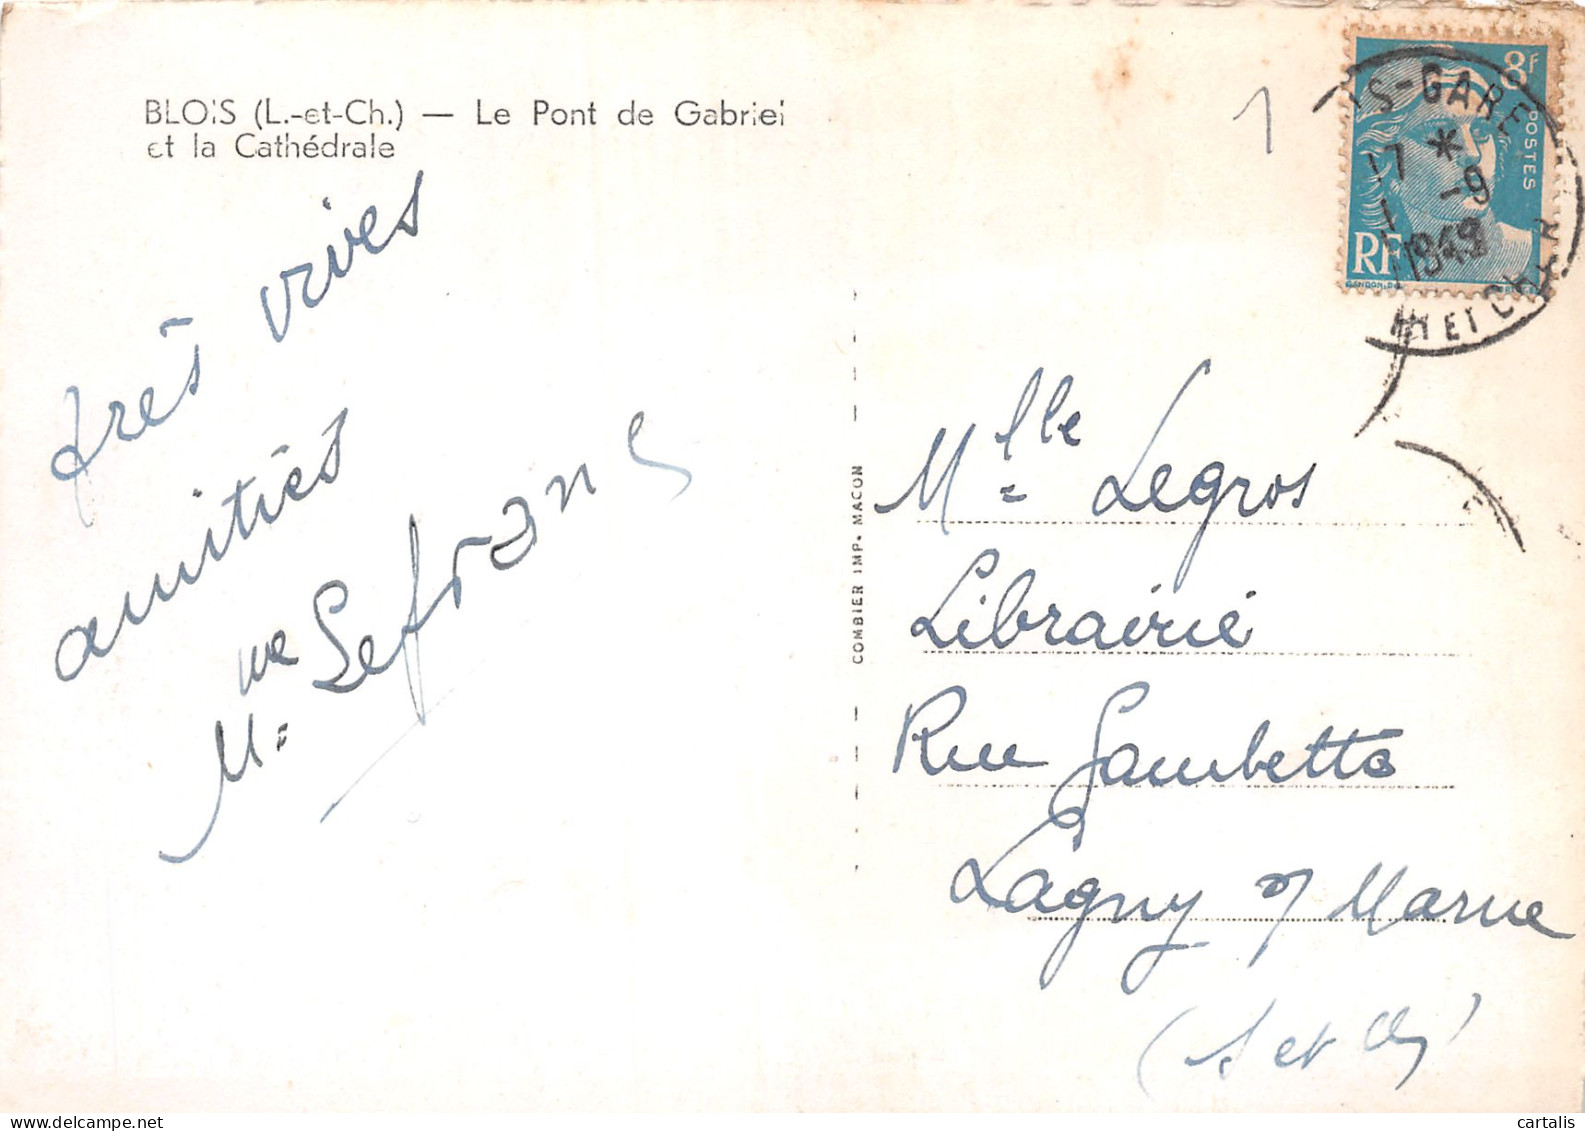 BLOIS (L.-et-Ch.) — Le Pont de Gabriel
et la Cathédrale
très vives
amitiés
Mme Lefranc
1
8F
POSTES
RF
GANDON
IS-GARE
17 *
-9
1949
ET CHER
COMBIER IMP. MACON
Mlle Legros
Librairie
Rue Gambetta
Lagny s/ Marne
(S et M)
cartalis